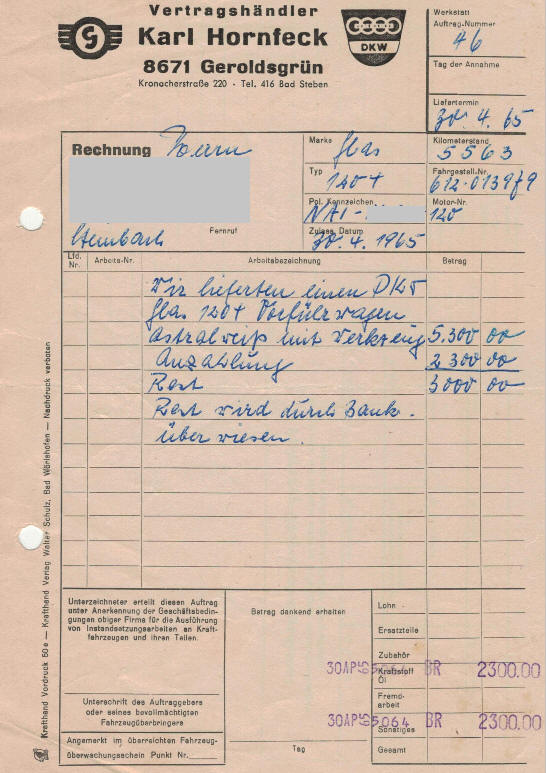 Vertragshändler
Karl Hornfeck
8671 Geroldsgrün
Kronacherstraße 220 - Tel. 416 Bad Steben
G
DKW
Werkstatt
Auftrag-Nummer
46
Tag der Annahme
Liefertermin
30. 4. 65
Rechnung Herrn
Steinbach
Fernruf
Marke Glas
Typ
1204
Pol. Kennzeichen
NAI -
Zulass. Datum
30. 4. 1965
Kilometerstand
5563
Fahrgestell-Nr.
Motor-Nr.
120
Lfd. Nr. Arbeits-Nr. Arbeitsbezeichnung Betrag
Wir lieferten einen
Glas 1204 Vorführwagen
Astralweiß mit Werkzeug 5.300 00
Anzahlung 2 300 00
Rest 3000 00
Rest wird durch Bank.
überwiesen.
Unterzeichneter erteilt diesen Auftrag
unter Anerkennung der Geschäftsbedin-
gungen obiger Firma für die Ausführung
von Instandsetzungsarbeiten an Kraft-
fahrzeugen und ihren Teilen.
Unterschrift des Auftraggebers
oder seines bevollmächtigten
Fahrzeugüberbringers
Angemerkt im überreichten Fahrzeug-
überwachungsschein Punkt Nr.
Betrag dankend erhalten
Tag
Lohn
Ersatzteile
Zubehör
Kraftstoff
Öl
30AP65 5064 BR 2300.00
Fremd-
arbeit
30AP65 5064 BR 2300.00
Sonstiges
Gesamt
Krafthand Vordruck 50 e — Krafthand Verlag Walter Schulz, Bad Wörishofen — Nachdruck verboten